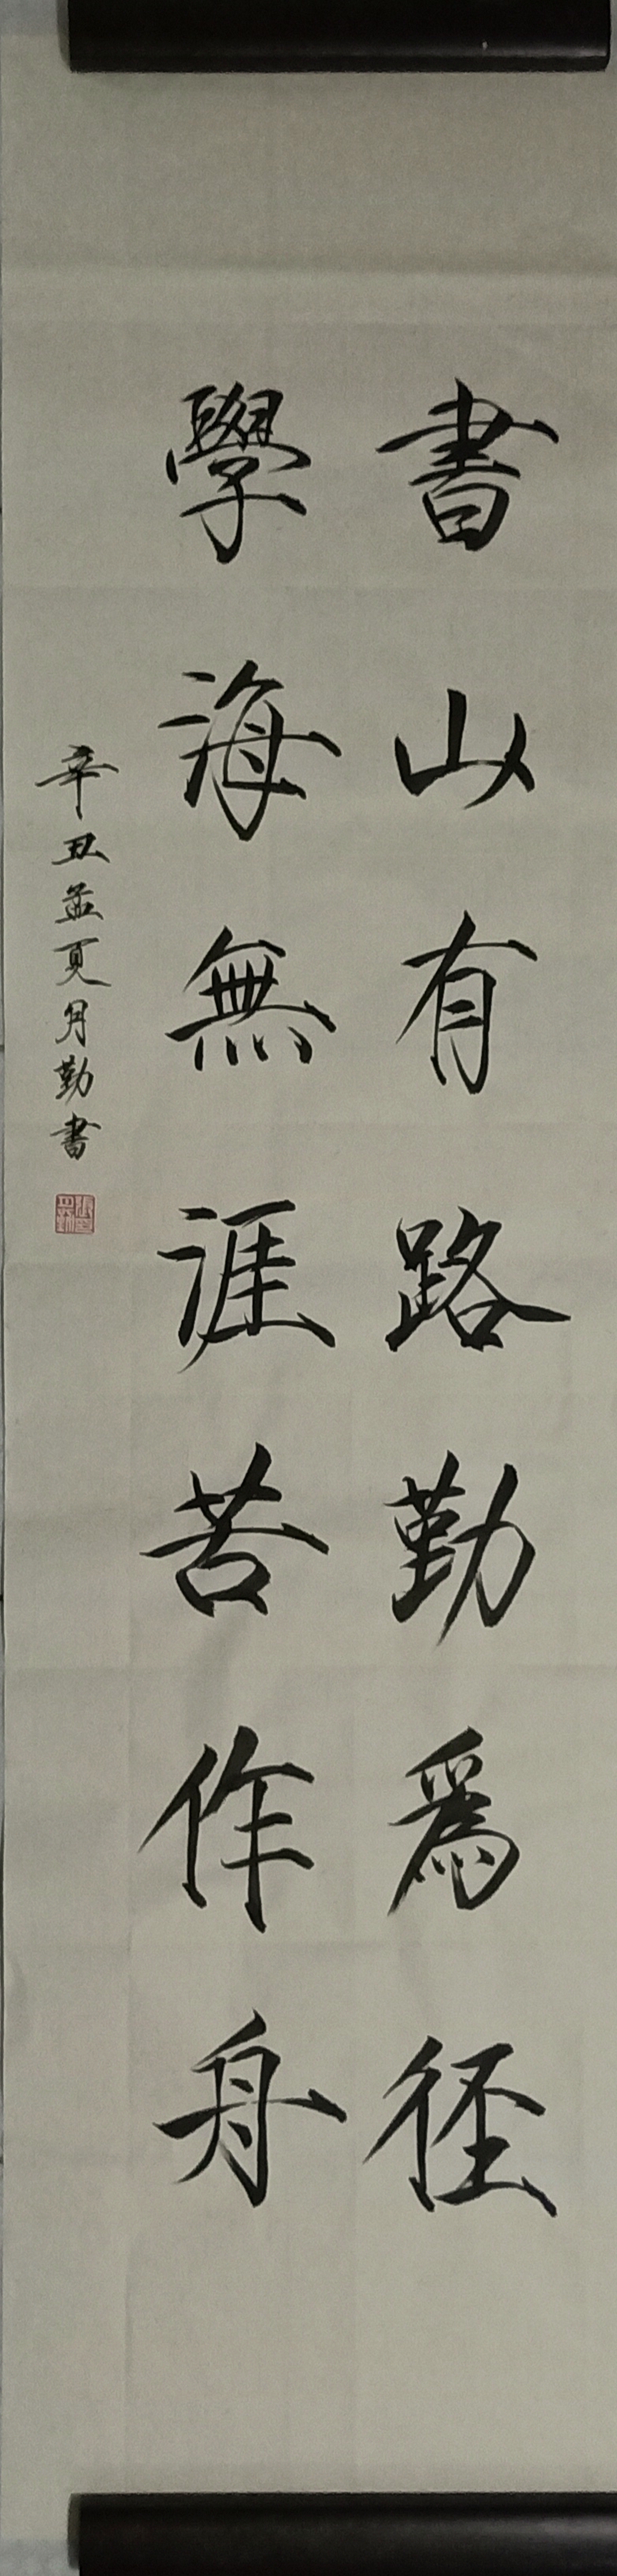 書山有路勤為徑
學海無涯苦作舟
辛丑孟夏月勤書